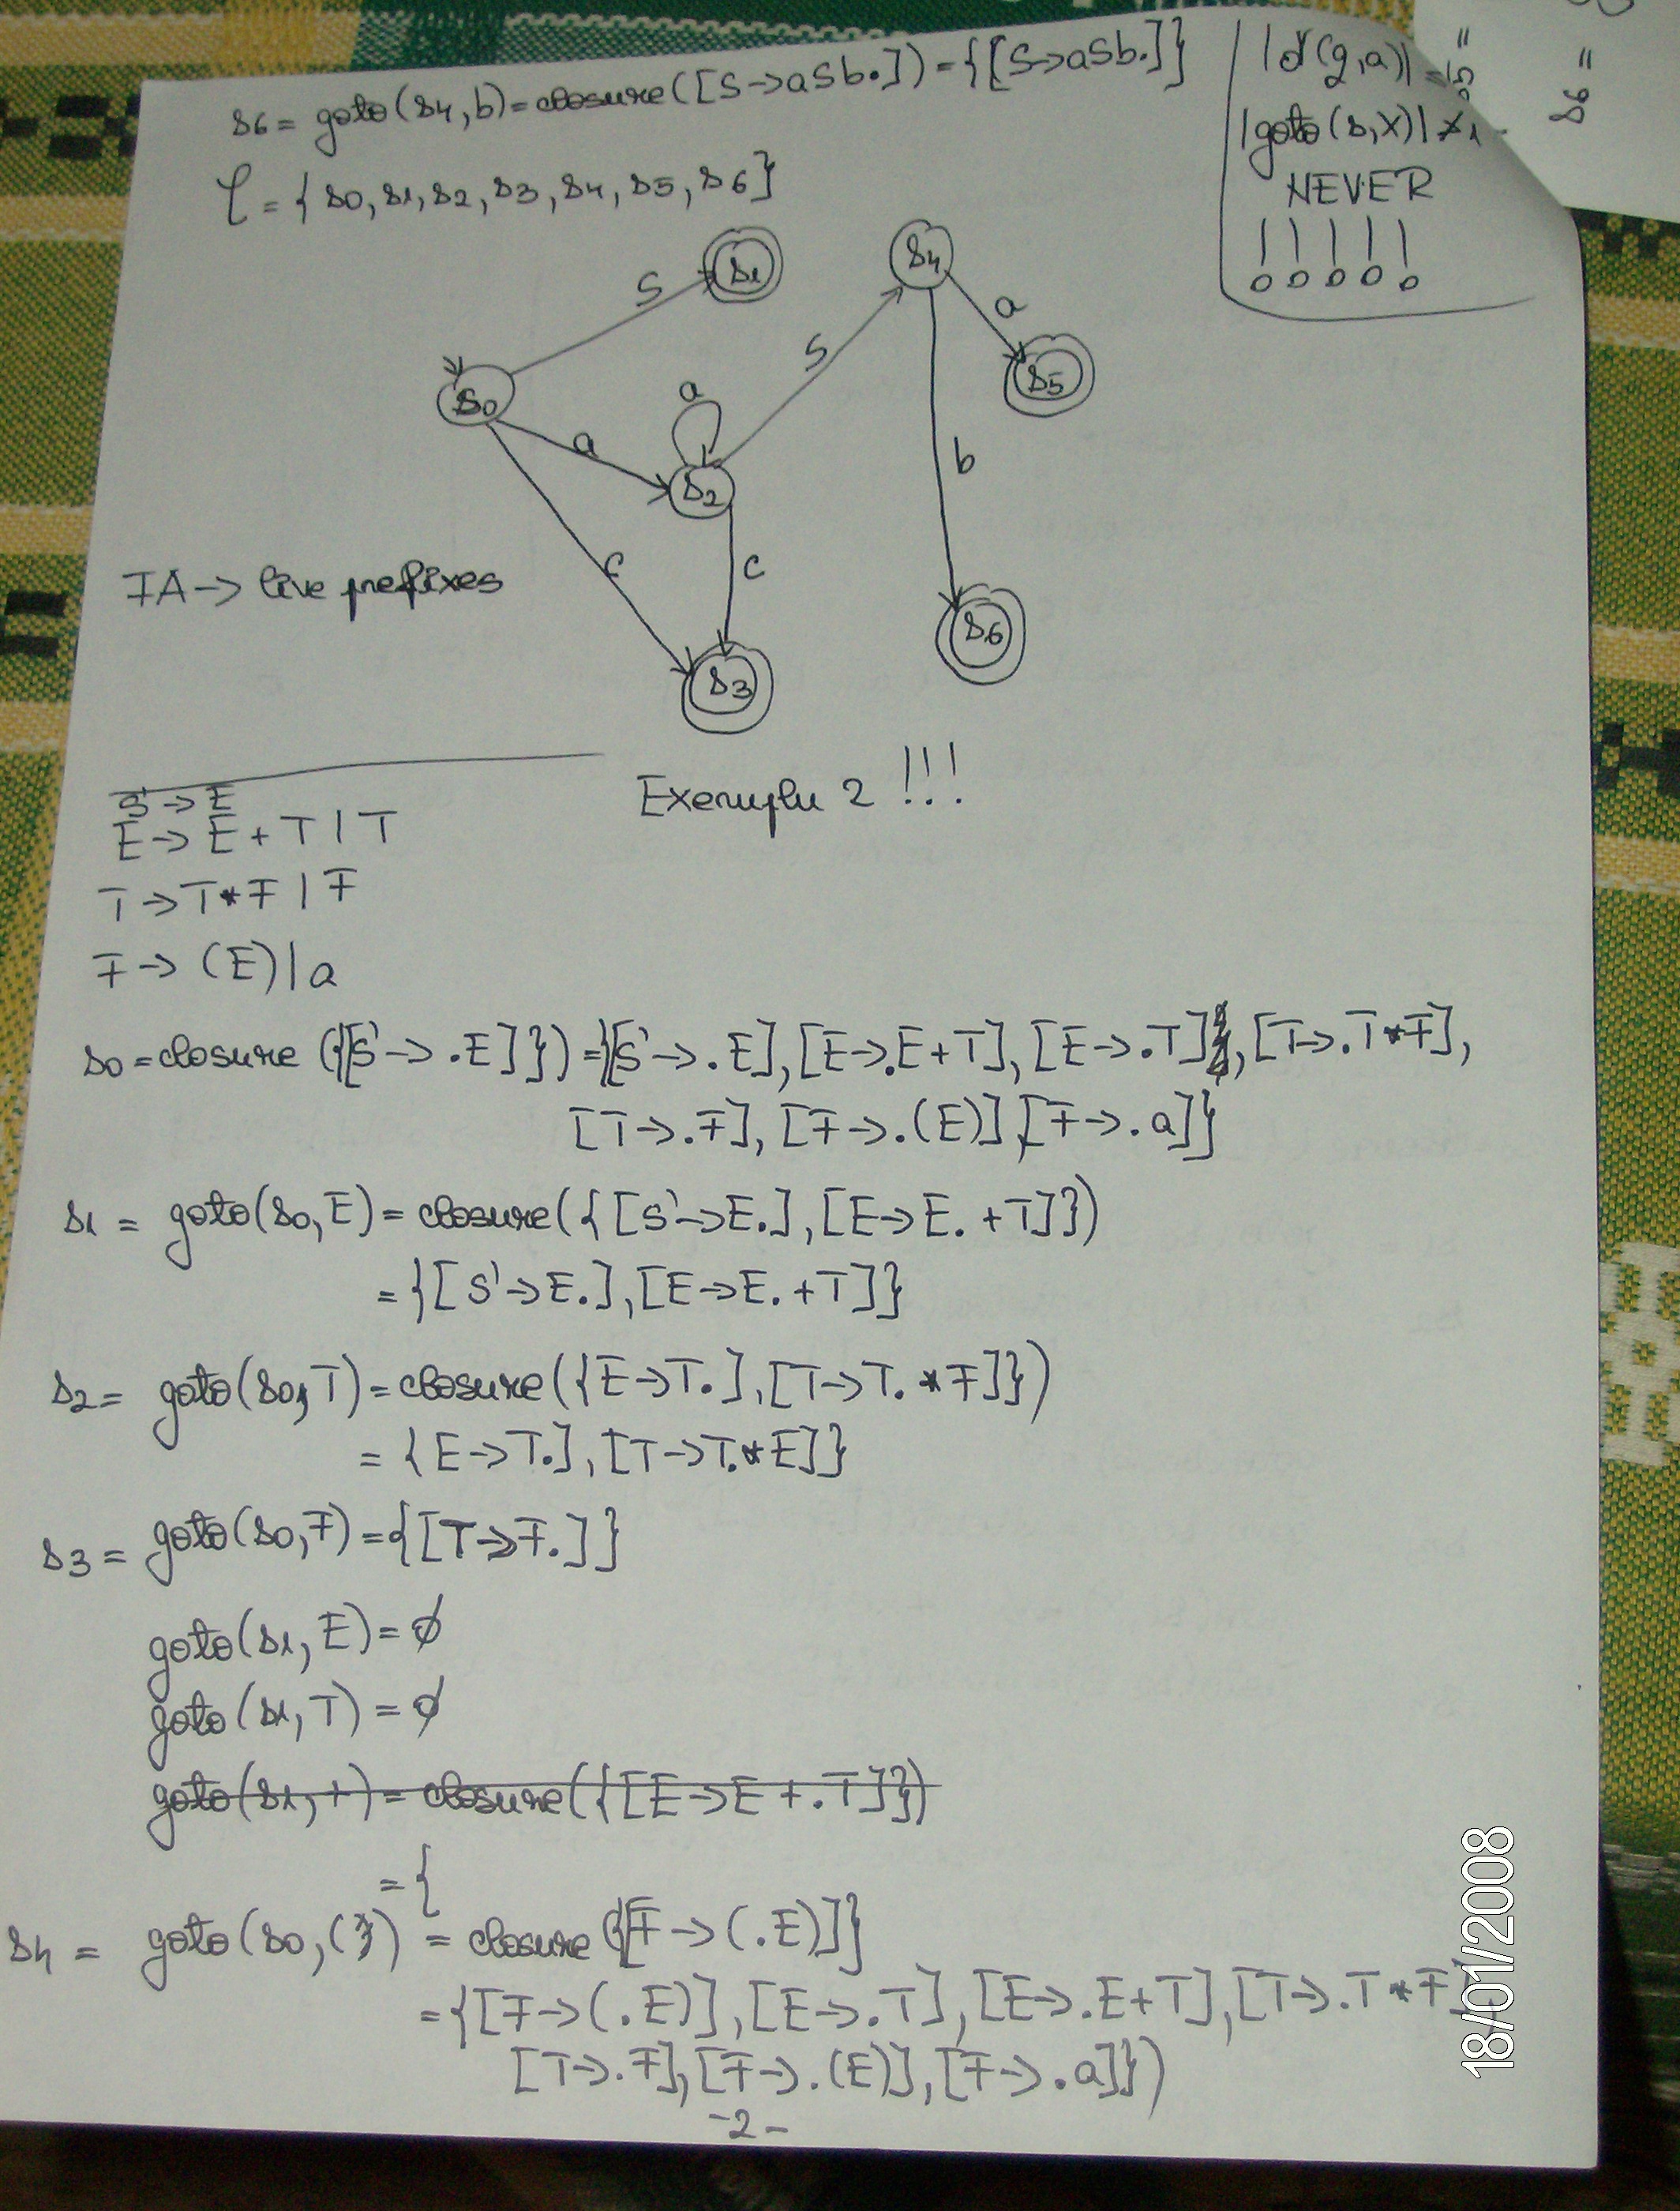 s6 = goto(s4, b) = closure([S->aSb.]) = {[S->aSb.]}
C = {s0, s1, s2, s3, s4, s5, s6}
|goto(s,x)| ≯1
NEVER
! ! ! ! !
s6 =
s1
s4
S
a
s0
S
s5
a
a
s2
b
c
c
FA -> live prefixes
s6
s3
Exemplu 2 !!!
S' -> E
E -> E + T | T
T -> T * F | F
F -> (E) | a
s0 = closure ({[S' -> .E]}) = {[S' -> .E], [E->.E+T], [E->.T], [T->.T*F],
[T->.F], [F->.(E)], [F->.a]}
s1 = goto(s0, E) = closure({[S'->E.], [E->E.+T]})
= {[S'->E.], [E->E.+T]}
s2 = goto(s0, T) = closure({E->T.], [T->T.*F]})
= {E->T.], [T->T.*E]}
s3 = goto(s0, F) = {[T->F.]}
goto(s1, E) = ∅
goto(s1, T) = ∅
goto(s1, +) = closure({[E->E+.T]})
= {
s4 = goto(s0, () = closure ({[F->(.E)]}
= {[F->(.E)], [E->.T], [E->.E+T], [T->.T*F],
[T->.F], [F->.(E)], [F->.a]})
-2-
18/01/2008